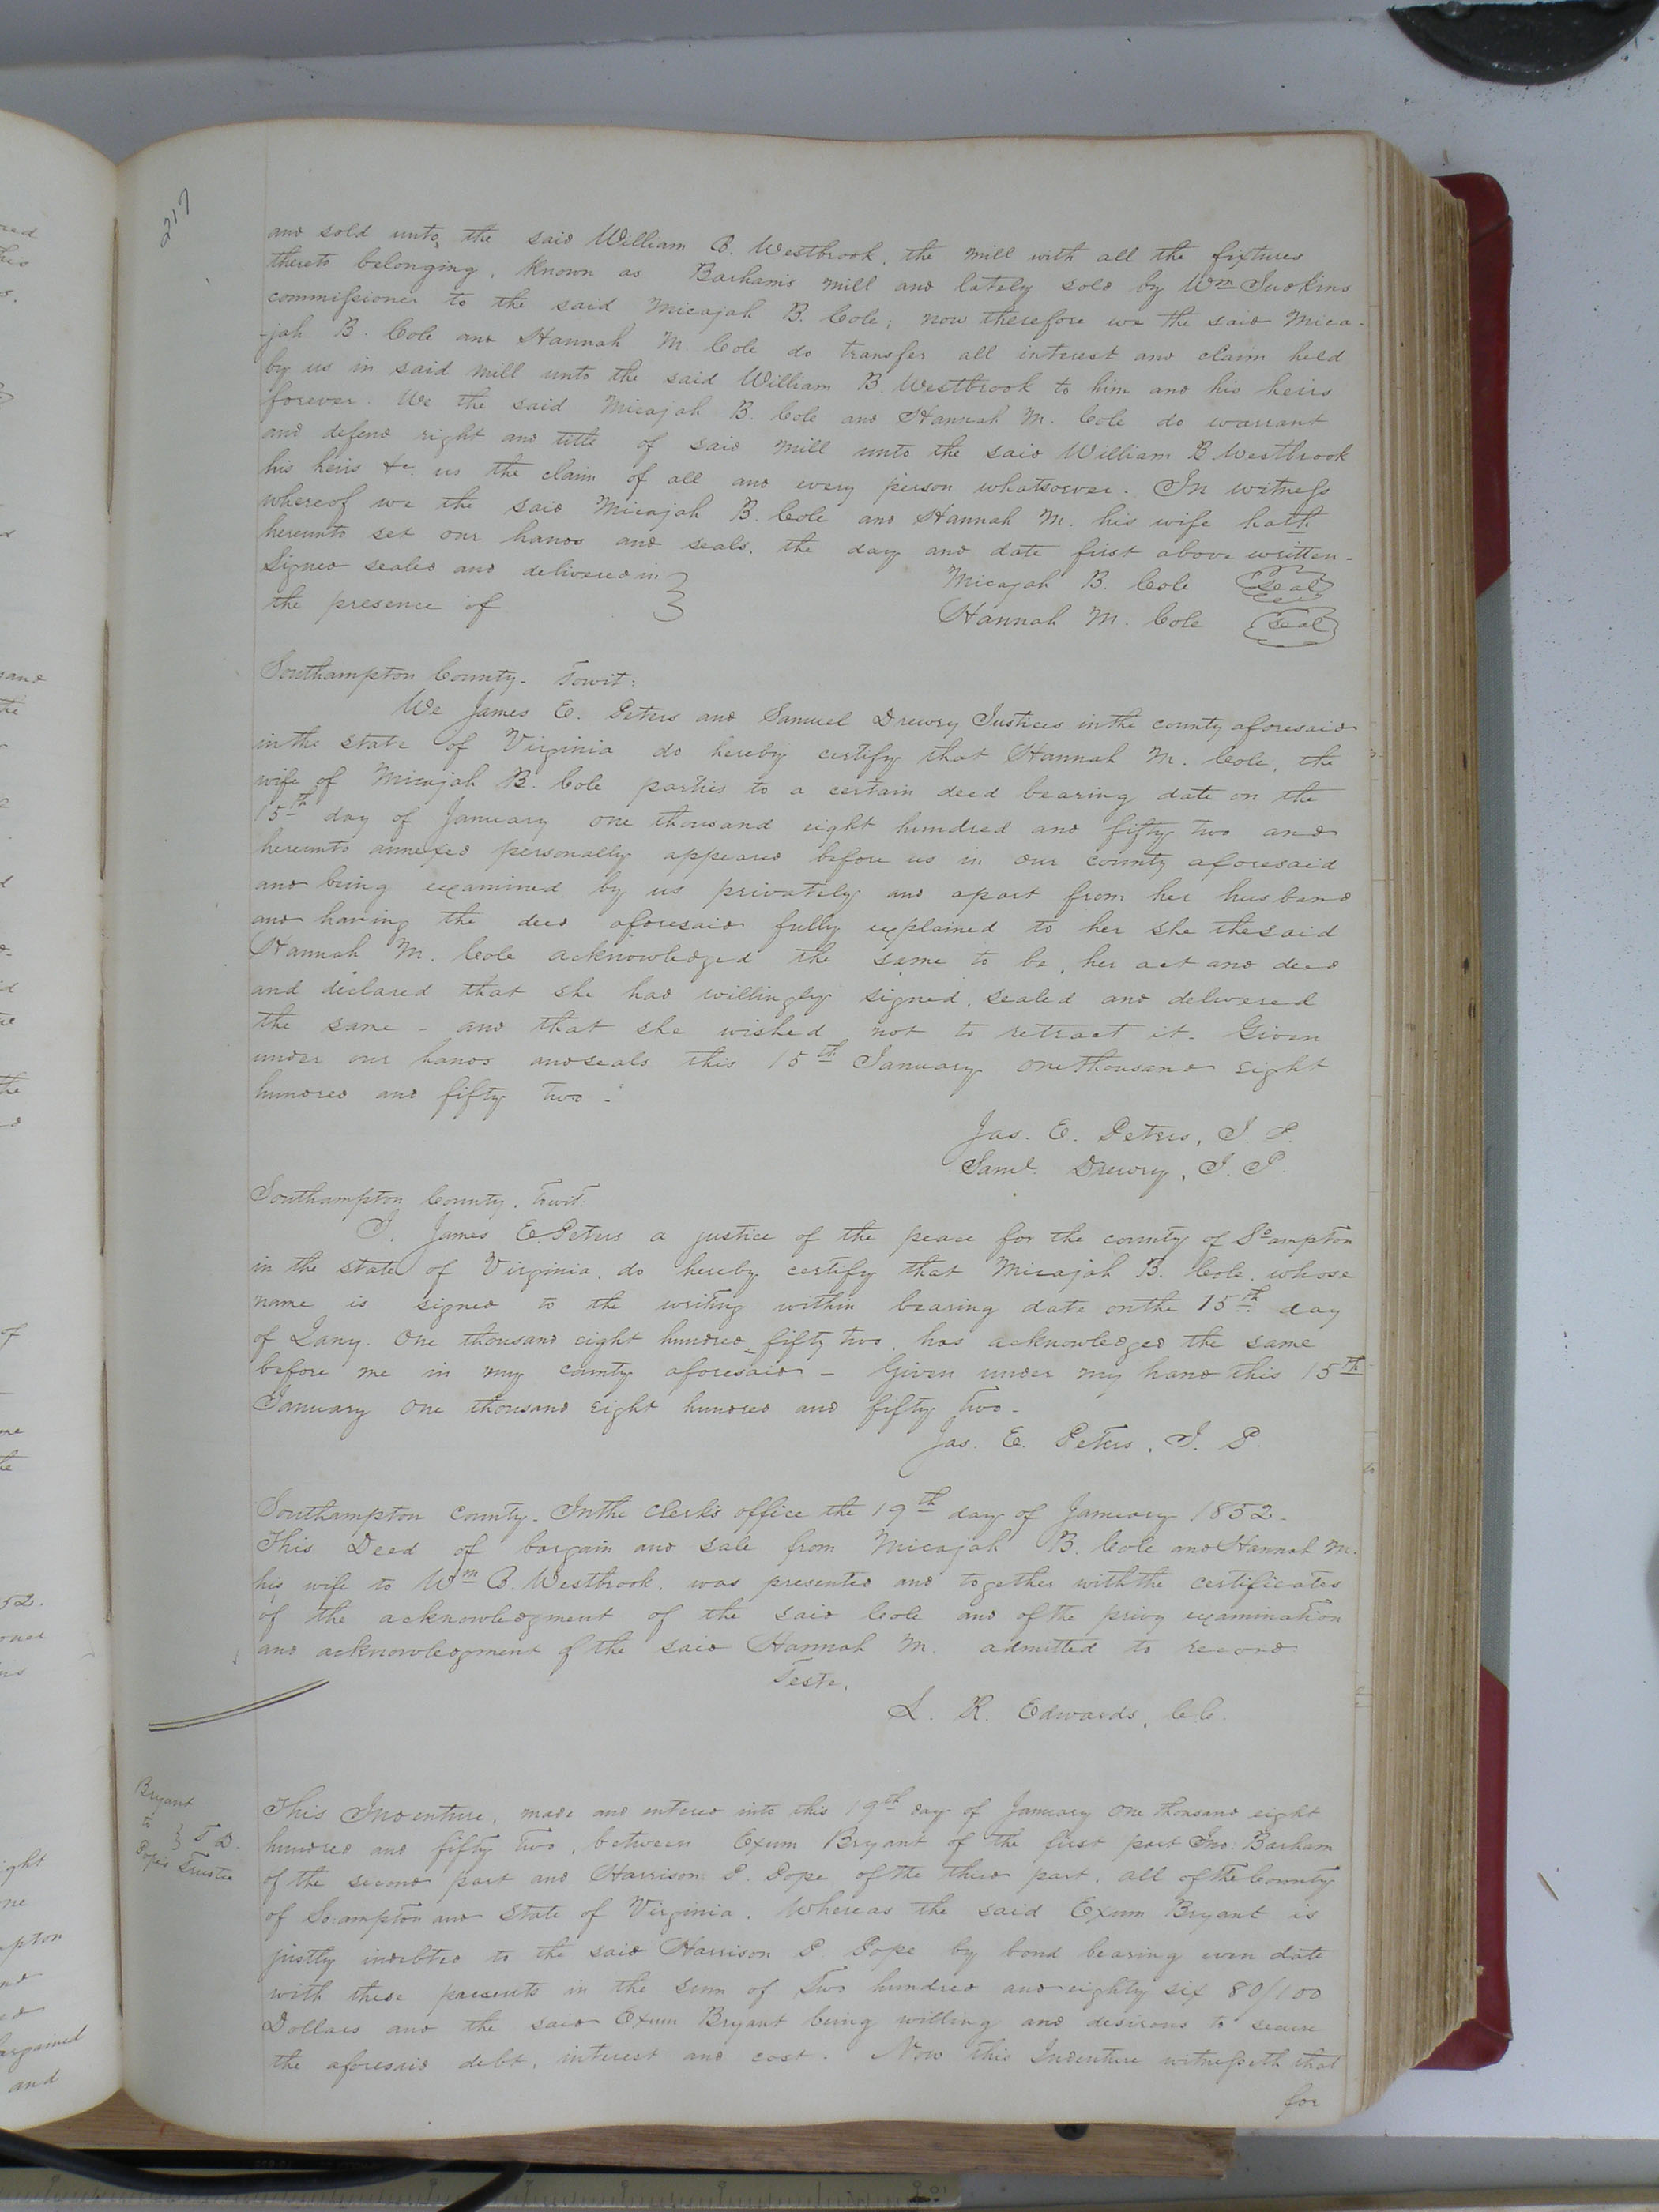 217
and sold unto, the said William B. Westbrook, the mill with all the fixtures
thereto belonging, known as Barham's mill and lately sold by Wm Judkins
commissioner to the said Micajah B. Cole; now therefore we the said Mica-
-jah B. Cole and Hannah M. Cole do transfer all interest and claim held
by us in said mill unto the said William B. Westbrook to him and his heirs
forever. We the said Micajah B. Cole and Hannah M. Cole do warrant
and defend right and title of said mill unto the said William B Westbrook
his heirs &c. us the claim of all and every person whatsoever. In witness
whereof we the said Micajah B. Cole and Hannah M. his wife hath
hereunto set our hands and seals, the day and date first above written-
Signed sealed and delivered in
the presence of
Micajah B. Cole Seal
Hannah M. Cole Seal
Southampton County. Towit:
We James E. Peters and Samuel Drewry Justices in the county aforesaid
in the state of Virginia do hereby certify that Hannah M. Cole, the
wife of Micajah B. Cole parties to a certain deed bearing date on the
15th day of January one thousand eight hundred and fifty two and
hereunto annexed personally appeared before us in our county aforesaid
and being examined by us privately and apart from her husband
and having the deed aforesaid fully explained to her she the said
Hannah M. Cole acknowledged the same to be, her act and deed
and declared that she had willingly signed, sealed and delivered
the same - and that she wished not to retract it. Given
under our hands and seals this 15th January one thousand eight
hundred and fifty two -
Jas. E. Peters, J. P.
Saml. Drewry, J. P.
Southampton County. Towit:
I. James E. Peters a justice of the peace for the county of So ampton
in the state of Virginia, do hereby certify that Micajah B. Cole, whose
name is signed to the writing within bearing date on the 15th day
of Jany. One thousand eight hundred fifty two, has acknowledged the same
before me in my county aforesaid - Given under my hand this 15th
January One thousand eight hundred and fifty two -
Jas. E. Peters, J. P.
Southampton County. In the Clerk's office the 19th day of January 1852.
This Deed of bargain and sale from Micajah B. Cole and Hannah M.
his wife to Wm B. Westbrook, was presented and together with the certificates
of the acknowledgment of the said Cole and of the privy examination
and acknowledgment of the said Hannah M. admitted to record
Teste,
L. R. Edwards, C.C.
Bryant
to } T D.
Pope's Trustee
This Indenture, made and entered into this 19th day of January One thousand eight
hundred and fifty two, between Exum Bryant of the first part Jno. Barham
of the second part and Harrison P. Pope of the third part, all of the County
of So.ampton and State of Virginia. Whereas the said Exum Bryant is
justly indebted to the said Harrison P. Pope by bond bearing even date
with these presents in the sum of Two hundred and eighty six 80/100
Dollars and the said Exum Bryant being willing and desirous to secure
the aforesaid debt, interest and cost. Now this Indenture witnesseth that
for